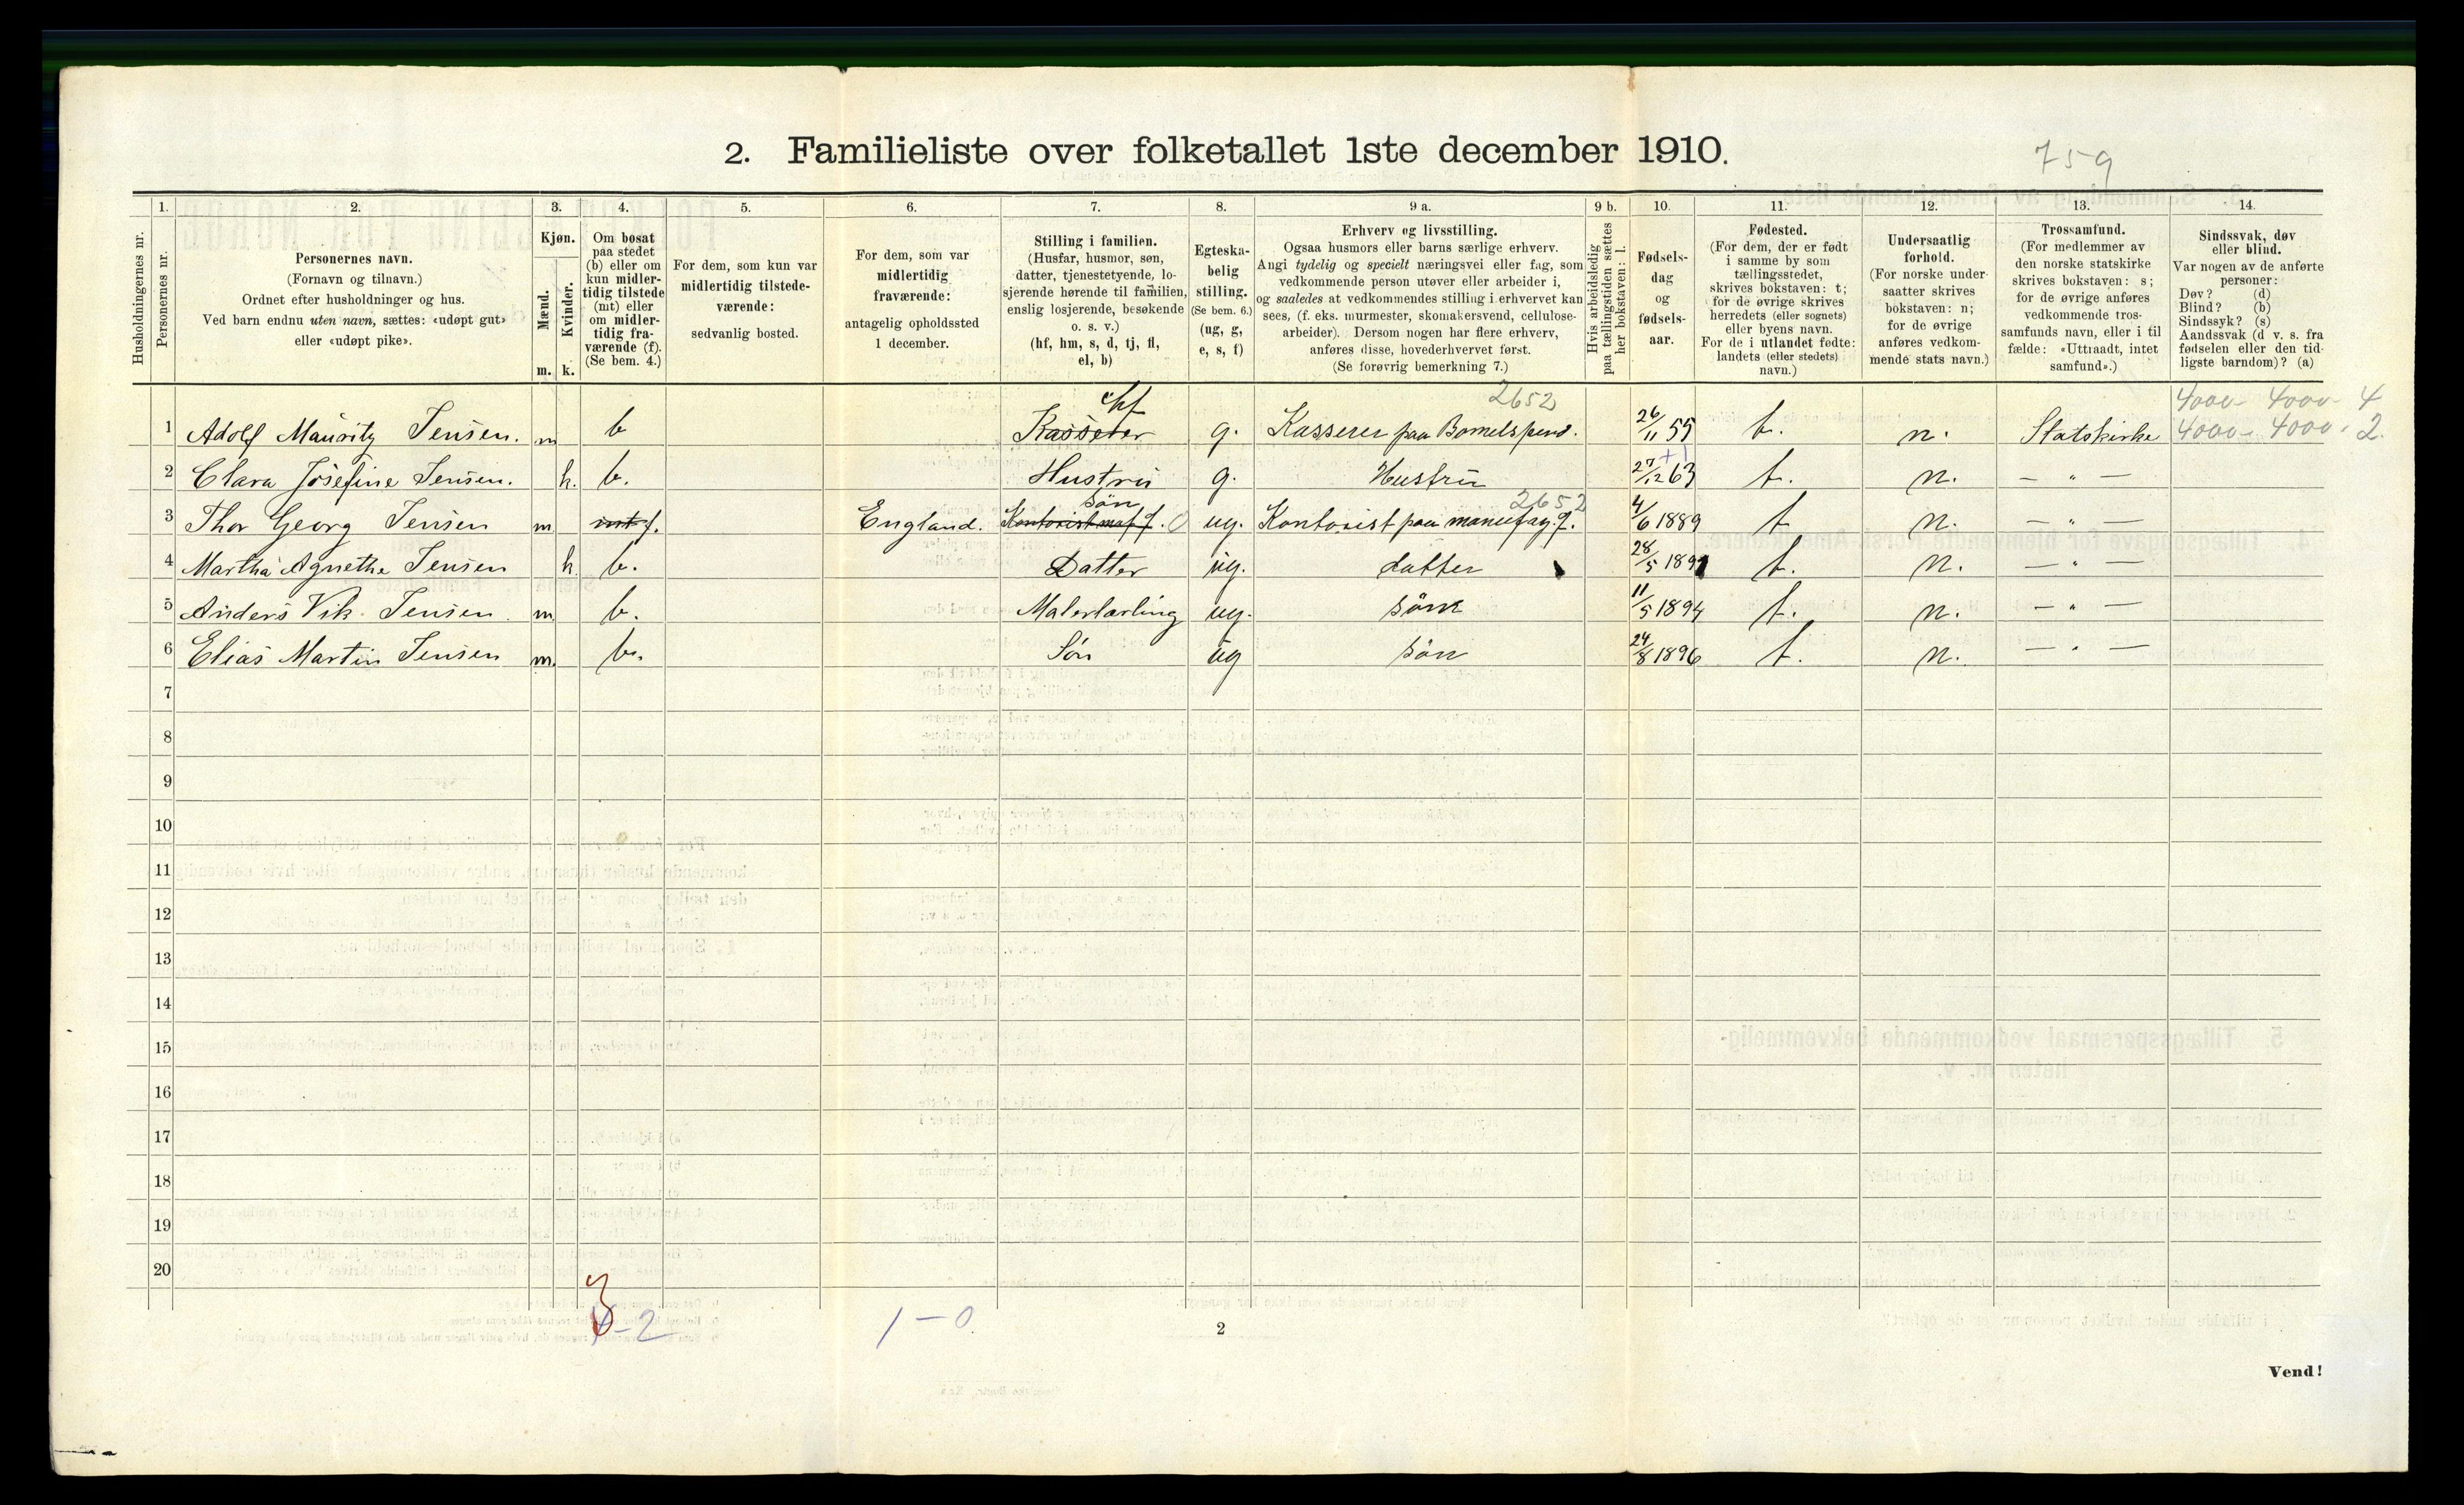 2. Familieliste over folketallet 1ste december 1910.
759
Husholdningernes nr.
1.
Personernes nr.
2.
Personernes navn.
(Fornavn og tilnavn.)
Ordnet efter husholdninger og hus.
Ved barn endnu uten navn, sættes: «udøpt gut»
eller «udøpt pike».
3.
Kjøn.
Mænd.
Kvinder.
m. k.
4.
Om bosat
paa stedet
(b) eller om
kun midler-
tidig tilstede
(mt) eller
om midler-
tidig fra-
værende (f).
(Se bem. 4.)
5.
For dem, som kun var
midlertidig tilstede-
værende:
sedvanlig bosted.
6.
For dem, som var
midlertidig
fraværende:
antagelig opholdssted
1 december.
7.
Stilling i familien.
(Husfar, husmor, søn,
datter, tjenestetyende, lo-
sjerende hørende til familien,
enslig losjerende, besøkende
o. s. v.)
(hf, hm, s, d, tj, fl,
el, b)
8.
Egteska-
belig
stilling.
(Se bem. 6.)
(ug, g,
e, s, f)
9 a.
Erhverv og livsstilling.
Ogsaa husmors eller barns særlige erhverv.
Angi tydelig og specielt næringsvei eller fag, som
vedkommende person utøver eller arbeider i,
og saaledes at vedkommendes stilling i erhvervet kan
sees, (f. eks. murmester, skomakersvend, cellulose-
arbeider). Dersom nogen har flere erhverv,
anføres disse, hovederhvervet først.
(Se forøvrig bemerkning 7.)
9 b.
Hvis arbeidsledig
paa tællingstiden sættes
her bokstaven: l.
10.
Fødsels-
dag
og
fødsels-
aar.
11.
Fødested.
(For dem, der er født
i samme by som
tællingsstedet,
skrives bokstaven: t;
for de øvrige skrives
herredets (eller sognets)
eller byens navn.
For de i utlandet fødte:
landets (eller stedets)
navn.)
12.
Undersaatlig
forhold.
(For norske under-
saatter skrives
bokstaven: n;
for de øvrige
anføres vedkom-
mende stats navn.)
13.
Trossamfund.
(For medlemmer av
den norske statskirke
skrives bokstaven: s;
for de øvrige anføres
vedkommende tros-
samfunds navn, eller i til
fælde: «Uttraadt, intet
samfund».)
14.
Sindssvak, døv
eller blind.
Var nogen av de anførte
personer:
Døv? (d)
Blind? (b)
Sindssyk? (s)
Aandssvak (d v. s. fra
fødselen eller den tid-
ligste barndom)? (a)
hf 2652 4000 - 4000 - 4
1 Adolf Mauritz Jensen. m b Kasserer g. Kasserer paa Bomelspind. 26/11 55 t. n. Statskirke 4000 - 4000 - 2.
+1
2 Clara Josefine Jensen. k. b. Hustru g. Hustru 27/12 63 t. n. — " —
søn 2652
3 Thor Georg Jensen m mt f. England. ug. Kontorist paa manufag. 4/6 1889 t n. — " —
4 Martha Agnethe Jensen k. b. Datter ug. datter 28/5 1891 t. n. — " —
5 Anders Vik. Jensen. m b. Malerlærling ug. søn 11/5 1894 t. n. — " —
6 Elias Martin Jensen m. b. Søn ug søn 24/8 1896 t. n. — " —
7
8
9
10
11
12
13
14
15
16
17
18
19
20
3
- 2
1 - 0
2
Vend!